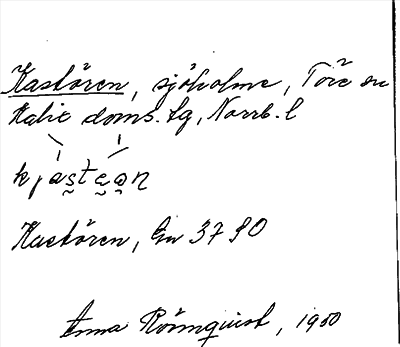 Kastören, sjöholme, Töre sn
Kalix doms. lg, Norrb. l
kjasteən
Kastören, Gn 3790
Anna Rönnquist, 1950